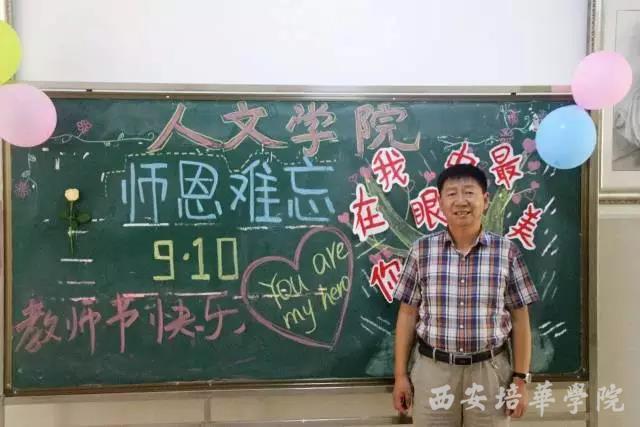 人文学院
师恩难忘
9·10
教师节快乐
You are
my hero
你在我眼
最美
西安培華学院